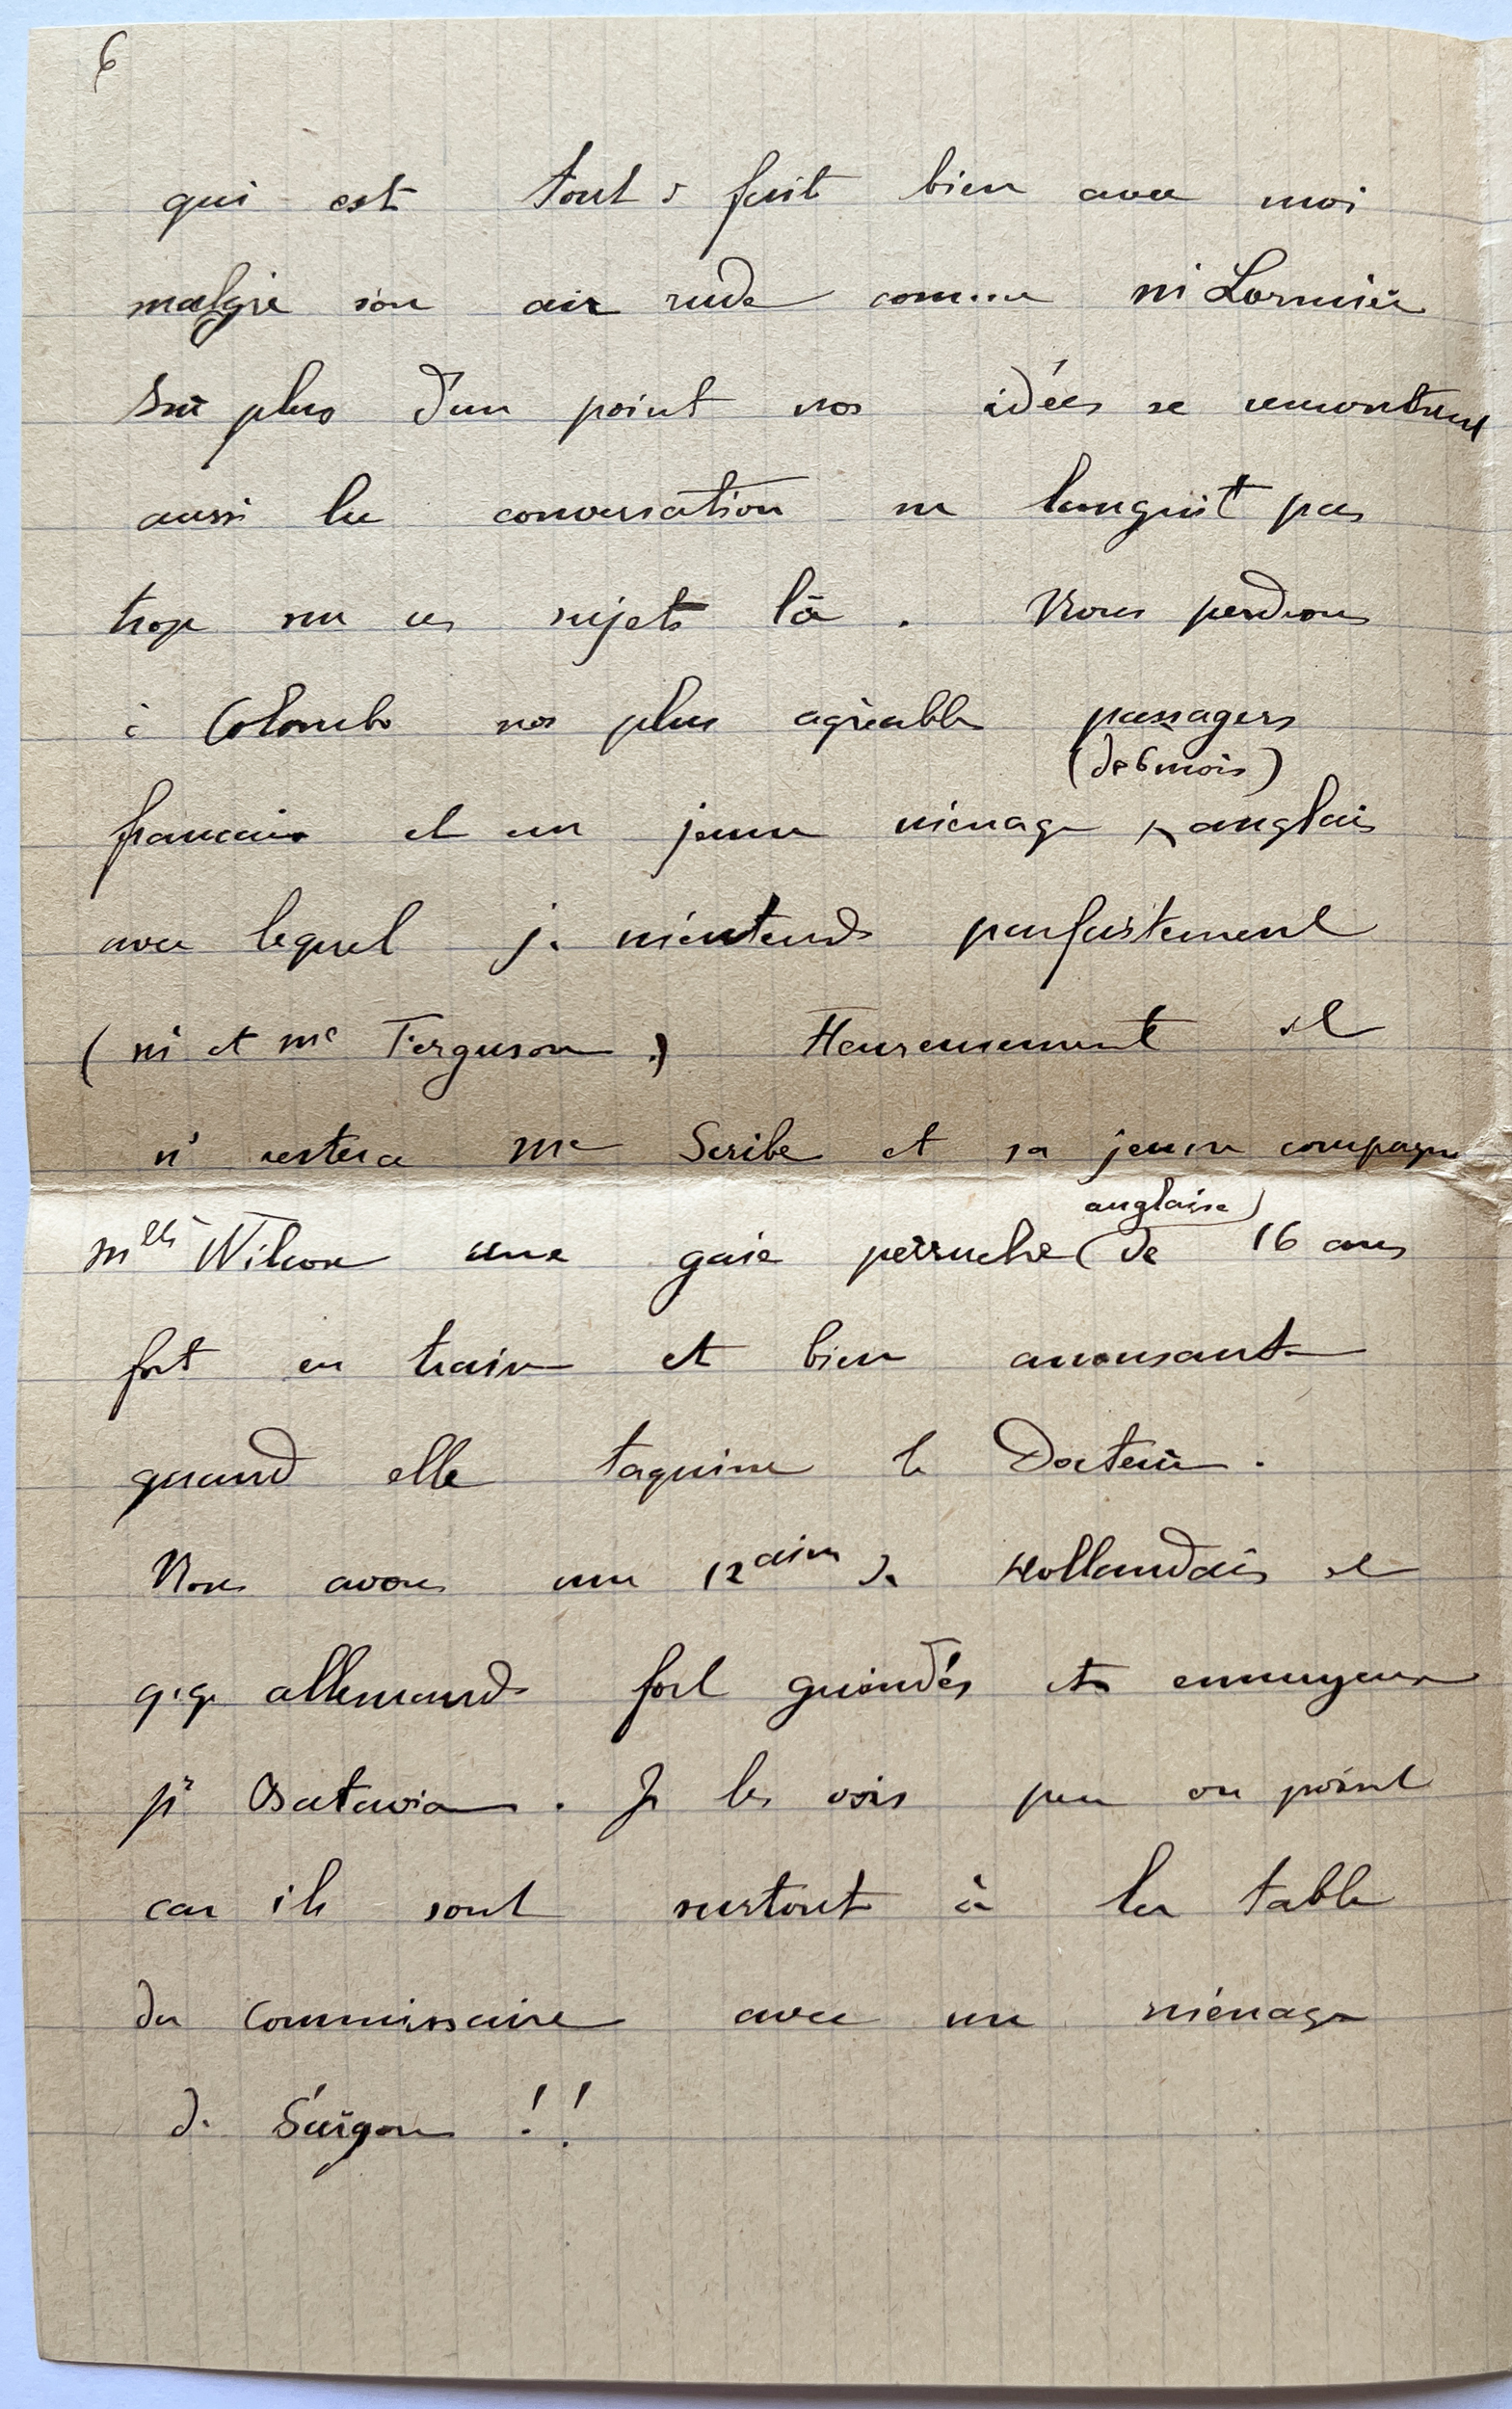 6
qui est tout à fait bien avec moi
malgré son air rude comme M Lormier
Sur plus d'un point nos idées se rencontrent
aussi la conversation ne languit pas
trop sur ces sujets là. Nous perdrons
à Colombo nos plus agréables passagers
(de 6 mois)
francais et un jeune ménage anglais
avec lequel je m'entends parfaitement
(M et Me Ferguson.) Heureusement il
n' restera Me Scribe et sa jeune compagne
anglaise)
Melle Wilcox une gaie perruche (de 16 ans
fort en train et bien amusante
quand elle taquine le Docteur.
Nous avons une 12aine de Hollandais et
q.q. allemands fort guindés et ennuyeux
pr Batavia. Je les vois peu ou point
car ils sont surtout à la table
du Commissaire avec un ménage
de Saïgon !!